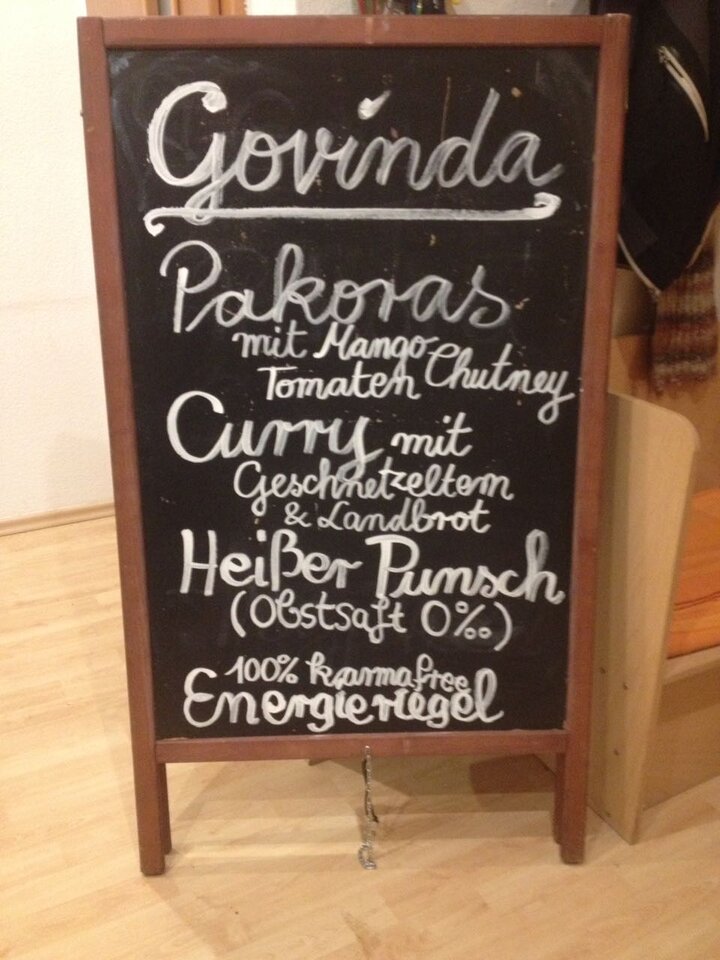 Govinda
Pakoras
mit Mango
Tomaten Chutney
Curry mit
Geschnetzeltem
& Landbrot
Heißer Punsch
(Obstsaft 0‰)
100% karmafree
Energieriegel